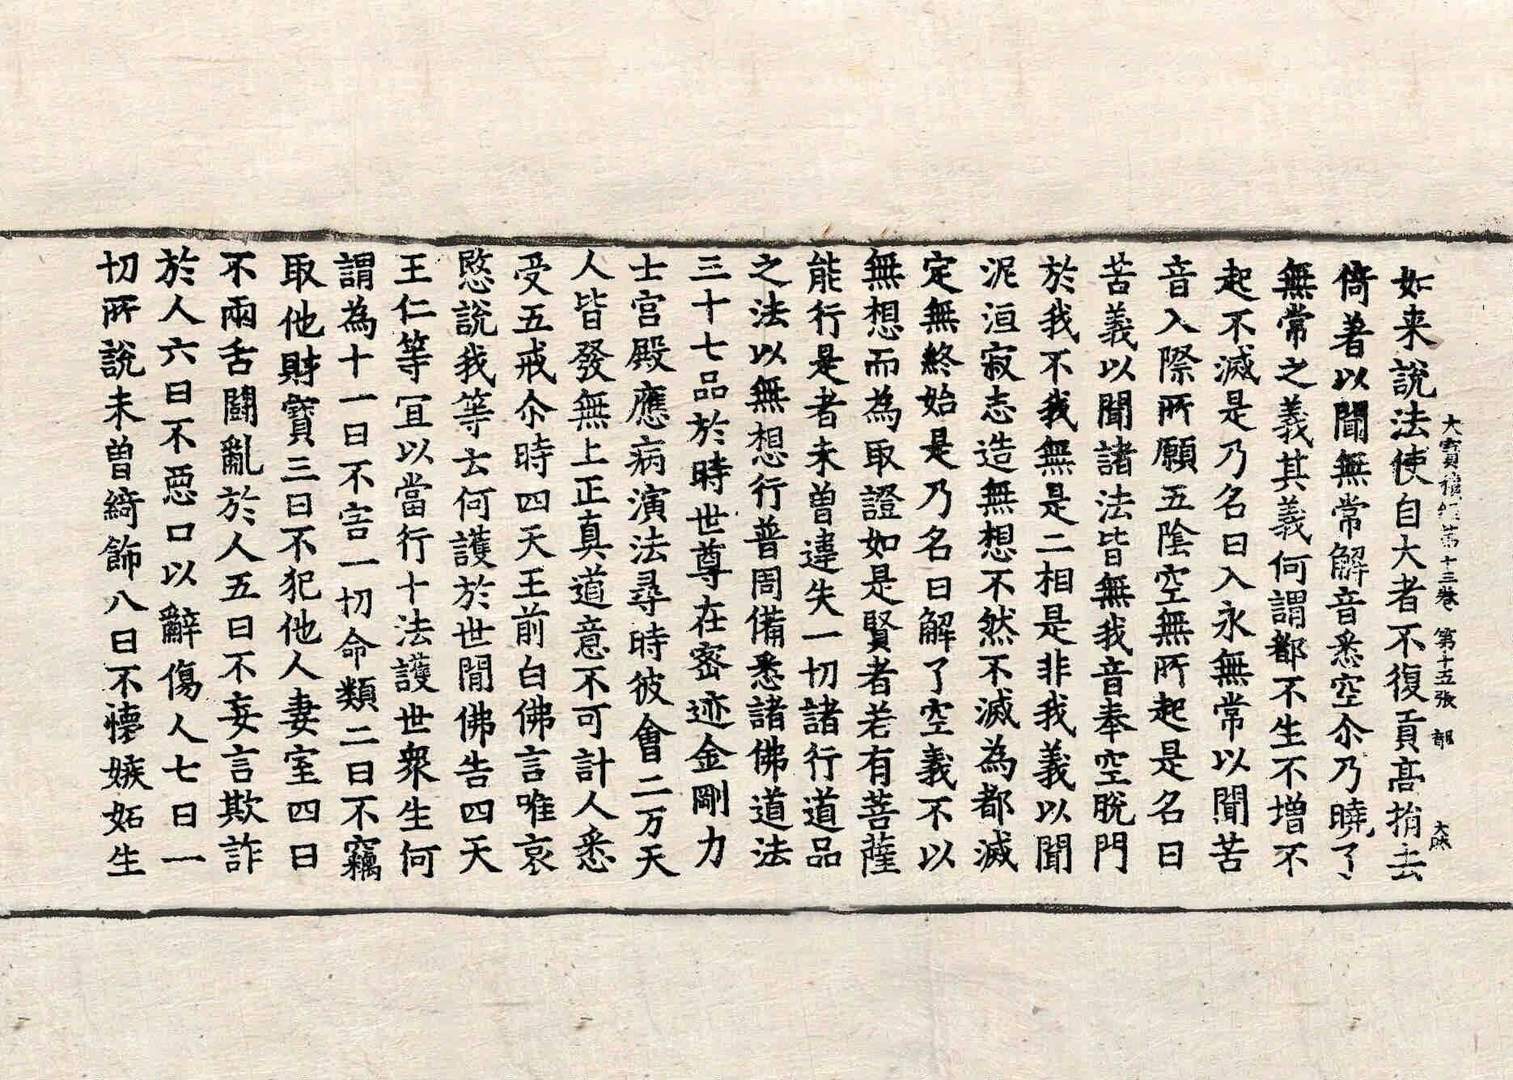 大寶積經第十三卷 第十五張 部 大
如来說法使自大者不復貢高捐去
倚著以聞無常解音悉空尒乃曉了
無常之義其義何謂都不生不增不
起不滅是乃名曰入永無常以聞苦
音入際所願五陰空無所起是名曰
苦義以聞諸法皆無我音奉空脫門
於我不我無是二相是非我義以聞
泥洹寂志造無想不然不滅為都滅
定無終始是乃名曰解了空義不以
無想而為取證如是賢者若有菩薩
能行是者未曽違失一切諸行道品
之法以無想行普周備悉諸佛道法
三十七品於時世尊在密迹金剛力
士宫殿應病演法尋時彼會二万天
人皆發無上正真道意不可計人悉
受五戒尒時四天王前白佛言唯哀
愍說我等云何護於世間佛告四天
王仁等冝以當行十法護世衆生何
謂為十一曰不害一切命類二曰不竊
取他財寶三曰不犯他人妻室四曰
不兩舌鬪亂於人五曰不妄言欺詐
於人六曰不惡口以辭傷人七曰一
切所說未曽綺飾八曰不懷嫉妬生